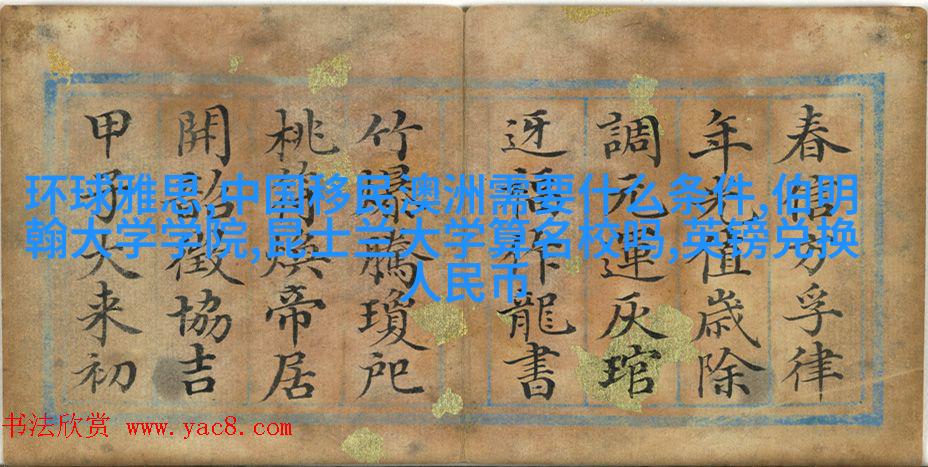 环球雅思,中国移民澳洲需要什么条件,伯明
翰大学学院,昆士兰大学算名校吗,英镑兑换
人民币
春信方孚律
年光值歲除
調元運灰琯
迓福作龍書
竹爆騰瓊戺
桃符煥帝居
開韶徵協吉
甲子大来初
书法欣赏 www.yac8.com